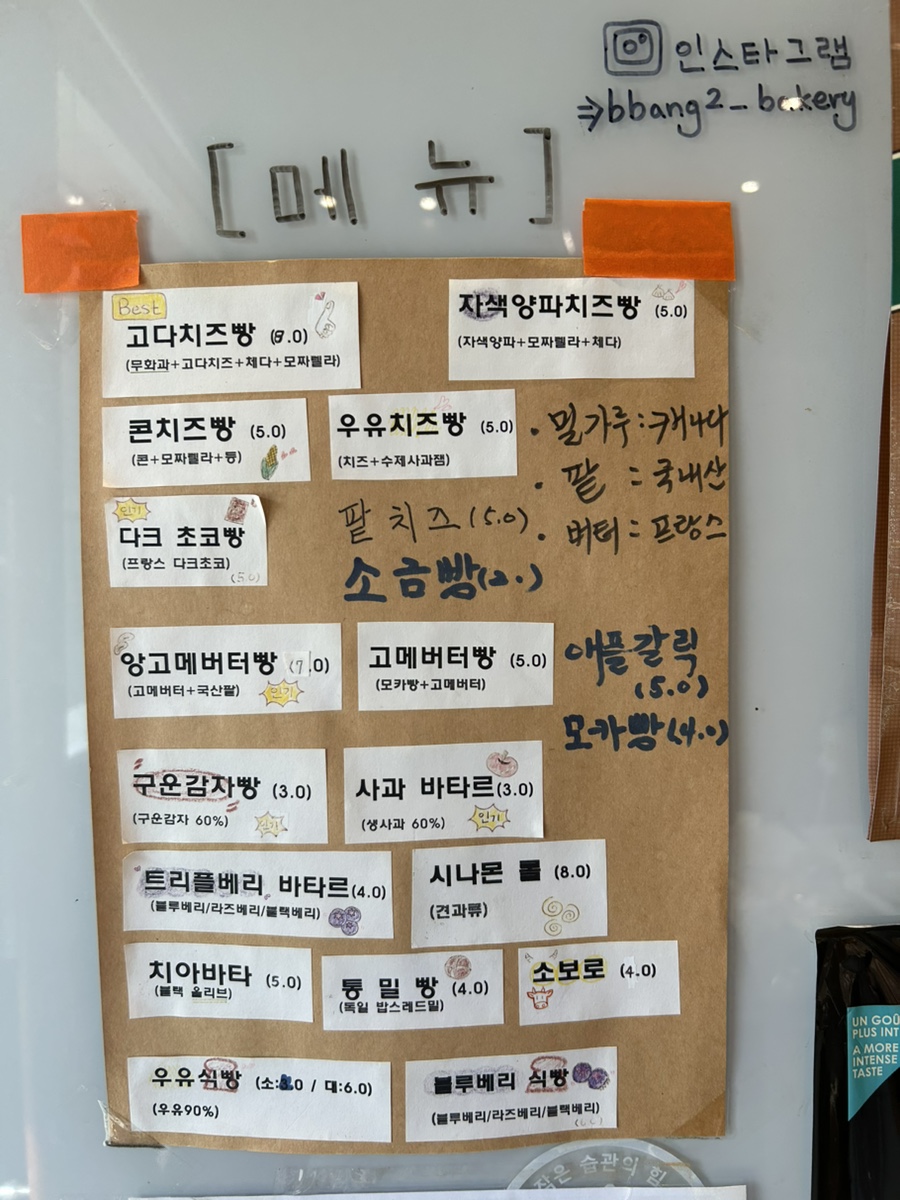 인스타그램
⇒bbang2_bakery
[메 뉴]
Best
고다치즈빵 (8.0)
(무화과+고다치즈+체다+모짜렐라)
자색양파치즈빵 (5.0)
(자색양파+모짜렐라+체다)
콘치즈빵 (5.0)
(콘+모짜렐라+등)
우유치즈빵 (5.0)
(치즈+수제사과잼)
· 밀가루 : 캐나다
· 팥 : 국내산
· 버터 : 프랑스
인기
다크 초코빵
(프랑스 다크초코)
(5.0)
팥 치즈 (5.0)
소금빵(2.)
앙고메버터빵 (7.0)
(고메버터+국산팥)
인기
고메버터빵 (5.0)
(모카빵+고메버터)
애플갈릭
(5.0)
모카빵(4.0)
구운감자빵 (3.0)
(구운감자 60%)
인기
사과 바타르(3.0)
(생사과 60%)
인기
트리플베리 바타르(4.0)
(블루베리/라즈베리/블랙베리)
시나몬 롤 (8.0)
(견과류)
치아바타 (5.0)
(블랙 올리브)
통 밀 빵 (4.0)
(독일 밥스레드밀)
소보로 (4.0)
우유식빵 (소:3.0 / 대:6.0)
(우유90%)
블루베리 식빵
(블루베리/라즈베리/블랙베리)
UN GOÛ
PLUS INT
A MORE
INTENSE
TASTE
작은 습관의 힘